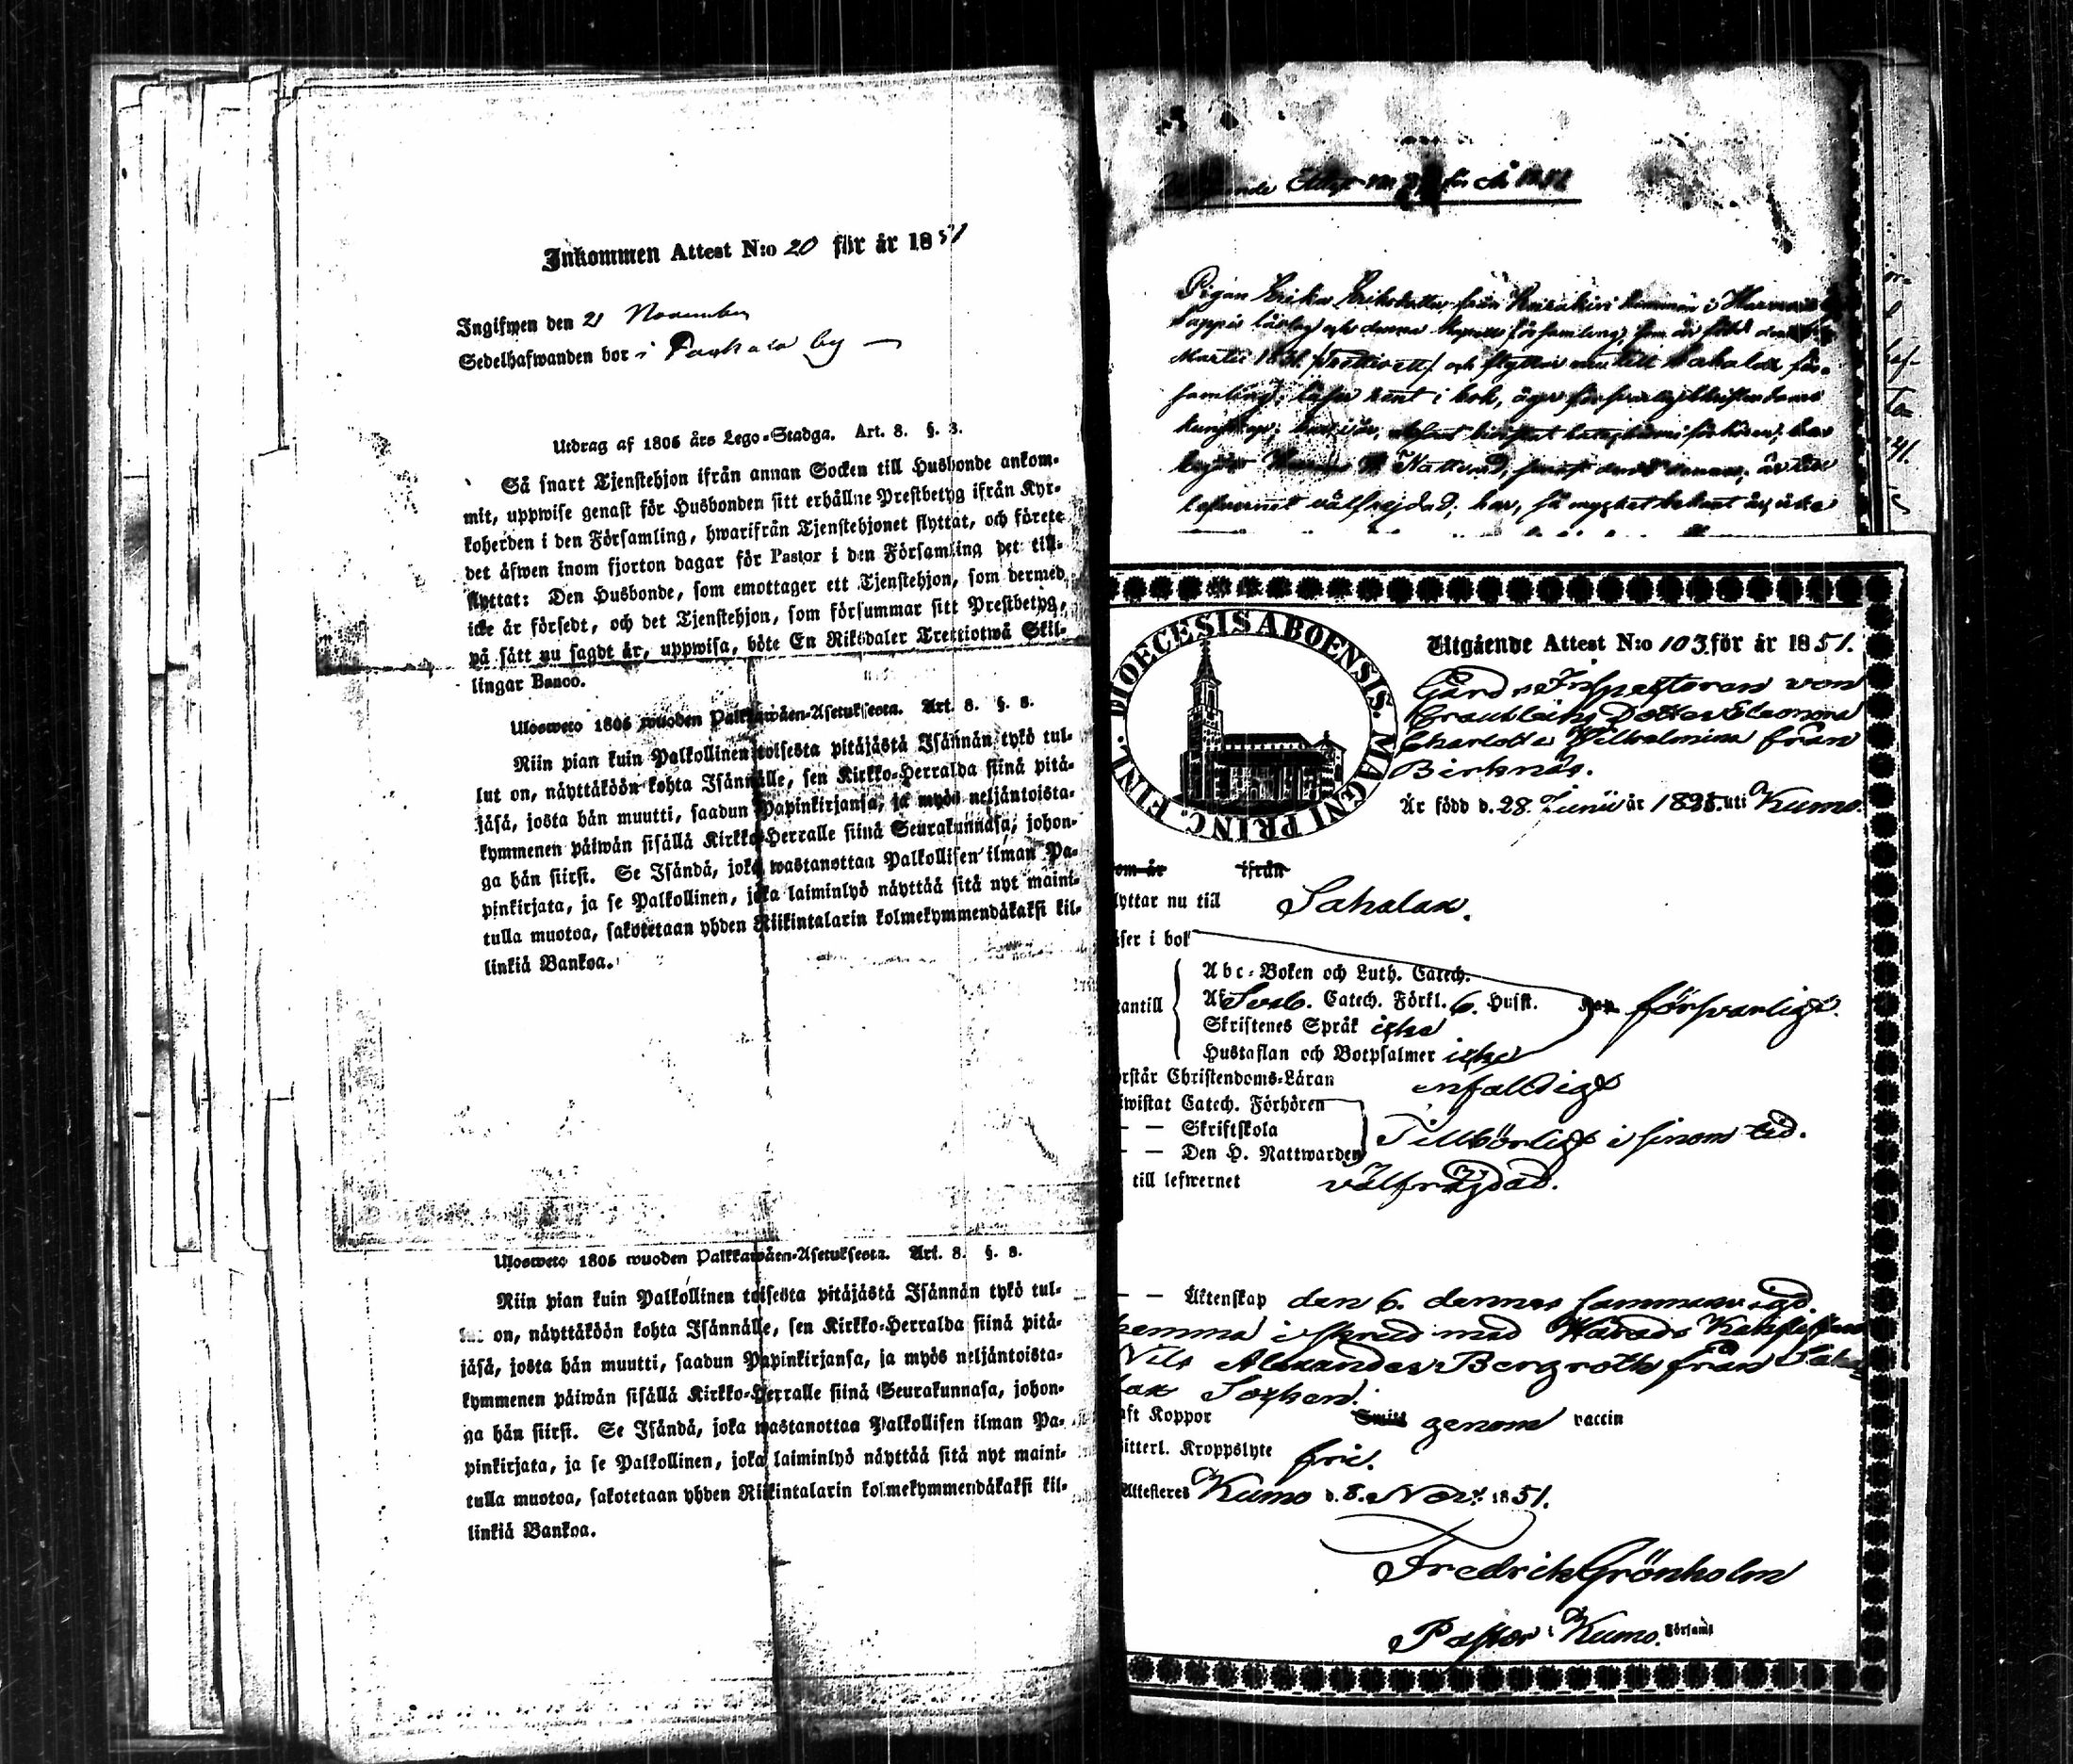 Inkommen Attest N:o 20 för år 1851
Ingifwen den 21 November
Sedelhafwanden bor i by
Utdrag af 1805 års Lego-Stadga. Art. 8. §. 8.
Så snart Tjenstehjon ifrån annan Socken till Husbonde ankom-
mit, uppwise genast för Husbonden sitt erhållne Prestbetyg ifrån Kyr-
koherden i den Församling, hwarifrån Tjenstehjonet flyttat, och förete
det äfwen inom fjorton dagar för Pastor i den Församling det till-
flyttat: Den Husbonde, som emottager ett Tjenstehjon, som dermed
icke är försedt, och det Tjenstehjon, som försummar sitt Prestbetyg,
på sätt nu sagdt är, uppwisa, böte En Riksdaler Trettiotwå Skil-
lingar Banco.
Ulosweto 1805 wuoden Palkkawäen-Asetuksesta. Art. 8. §. 8.
Niin pian kuin Palkollinen toisesta pitäjästä Isännän tykö tul-
lut on, näyttäköön kohta Isännälle, sen Kirkko-Herralda siinä pitä-
jäsä, josta hän muutti, saadun Papinkirjansa, ja myös neljäntoista-
kymmenen päiwän sisällä Kirkko-Herralle siinä Seurakunnasa, johon-
ga hän siirsi. Se Isändä, joka wastanottaa Palkollisen ilman Pa-
pinkirjata, ja se Palkollinen, joka laiminlyö näyttää sitä nyt maini-
tulla muotoa, sakotetaan yhden Riikintalarin kolmekymmendäkaksi kil-
linkiä Bankoa.
Ulosweto 1805 wuoden Palkkawäen-Asetuksesta. Art. 8. §. 8.
Niin pian kuin Palkollinen toisesta pitäjästä Isännän tykö tul-
lut on, näyttäköön kohta Isännälle, sen Kirkko-Herralda siinä pitä-
jäsä, josta hän muutti, saadun Papinkirjansa, ja myös neljäntoista-
kymmenen päiwän sisällä Kirkko-Herralle siinä Seurakunnasa, johon-
ga hän siirsi. Se Isändä, joka wastanottaa Palkollisen ilman Pa-
pinkirjata, ja se Palkollinen, joka laiminlyö näyttää sitä nyt maini-
tulla muotoa, sakotetaan yhden Riikintalarin kolmekymmendäkaksi kil-
linkiä Bankoa.
Attest för År 1851
Pigan Erika Eriksdotter från i
och denna församling, som är född den
Martii 1831 /trettioett/ och flyttar nu till Sahalax för-
samling; läser rent i bok, äger försvarlig Christendoms
kunskap; har
Nattvard, är till
lefvernet välfrejdad; har, så mycket bekant är, icke
DIOECESIS ABOENSIS. MAGNI PRINC. FINL.
Utgående Attest N:o 103 för år 1851.
Gårds Inspectoren von
Dotter Eleonora
Charlotta Wilhelmina från
Birknäs.
Är född d. 28 Junii år 182 uti Kumo.
om är ifrån
lyttar nu till Sahalax.
äser i bok
Abc-Boken och Luth. Catech.
Sveb. Catech. Förkl. 6. Husst. försvarligt.
tantill
Skriftenes Språk icke
Hustaflan och Botpsalmer icke
rstår Christendoms-Läran enfaldigt
iwistat Catech. Förhören
— — Skriftskola Tillbörligt i sinom tid.
— — Den H. Nattwarden
till lefwernet välfrägdad.
— — Äktenskap den 6. dennes sammanvigd
hemma i med Härads
Nils Alexander Bergroth från Saha-
lax Socken.
aft Koppor genom vaccin
itterl. Kroppslyte fri.
Attesteres Kumo d. 8. Nov. 1851.
Fredrik Grönholm
Pastor i Kumo. Församl